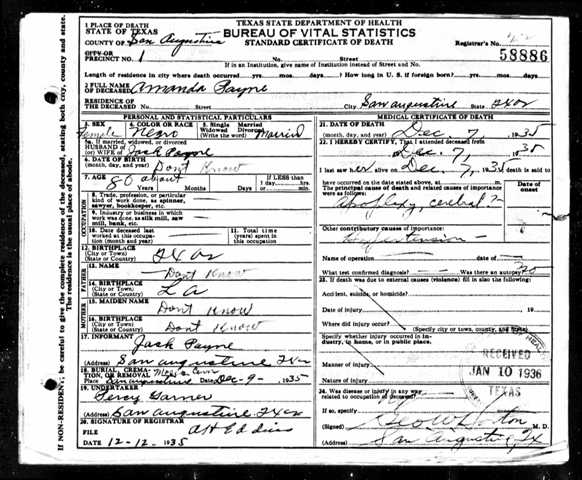 TEXAS STATE DEPARTMENT OF HEALTH
BUREAU OF VITAL STATISTICS
STANDARD CERTIFICATE OF DEATH
Registrar's No.
58886
1 PLACE OF DEATH
STATE OF TEXAS
COUNTY OF San Augustine
CITY OR
PRECINCT NO. 1 No. Street
If in an Institution, give name of Institution instead of Street and No.
Length of residence in city where death occurred yrs. mos. days. ? How long in U. S. if foreign born? yrs. mos. days.
2 FULL NAME
OF DECEASED Amanda Payne
RESIDENCE OF
THE DECEASED Street City San Augustine State Texas
PERSONAL AND STATISTICAL PARTICULARS
3. SEX 4. COLOR OR RACE 5. Single Married
Widowed Divorced
(write the word)
Female Negro Married
5a. If married, widowed, or divorced
HUSBAND OF
(or) WIFE OF Jack Payne
6. DATE OF BIRTH
(month, day, and year) Dont Know
7. AGE 80 about If LESS than
1 day,
Years Months Days
8. Trade, profession, or particular
kind of work done, as spinner,
sawyer, bookkeeper, etc.
9. Industry or business in which
work was done, as silk mill, saw
mill, bank, etc.
10. Date deceased last
worked at this occupa-
tion (month and year)
11. Total time
(years) spent in
this occupation
12. BIRTHPLACE
(City or Town)
(State or Country)
FATHER
13. NAME Dont Know
14. BIRTHPLACE
(City or Town)
(State or Country) La
MOTHER
15. MAIDEN NAME Dont Know
16. BIRTHPLACE
(City or Town)
(State or Country) Dont Know
17. INFORMANT Jack Payne
(Address) San Augustine Texas
18. BURIAL, CREMA-
TION, OR REMOVAL
Place San Augustine Date Dec-9- 1935
19. UNDERTAKER
Leroy Garner
(Address) San Augustine Texas
20. SIGNATURE OF REGISTRAR
FILE
DATE 12-12- 1935 AH Eddins
MEDICAL CERTIFICATE OF DEATH
21. DATE OF DEATH
(month, day, and year) Dec. 7, 1935
22. I HEREBY CERTIFY, That I attended deceased from
Dec. 7, 1935
I last saw her alive on Dec. 7, 1935 death is said to
have occurred on the date stated above, at m.
The principal cause of death and related causes of importance
were as follows:
Date of
onset
Apoplexy, cerebral ?
Other contributory causes of importance:
Hypertension
Name of operation date of
What test confirmed diagnosis? Was there an autopsy? no
23. If death was due to external causes (violence) fill in also the following:
Accident, suicide, or homicide?
Date of injury 19
Where did injury occur?
(Specify city or town, county, and State)
Specify whether injury occurred in in-
dustry, in home, or in public place.
Manner of injury
Nature of injury
RECEIVED
JAN 10 1936
TEXAS
24. Was disease or injury in any way
related to occupation of deceased?
If so, specify
(Signed) M. D.
(Address) San Augustine, Tx
IF NON-RESIDENT, be careful to give the complete residence of the deceased, stating both city, county and state.
The residence is the usual place of abode.